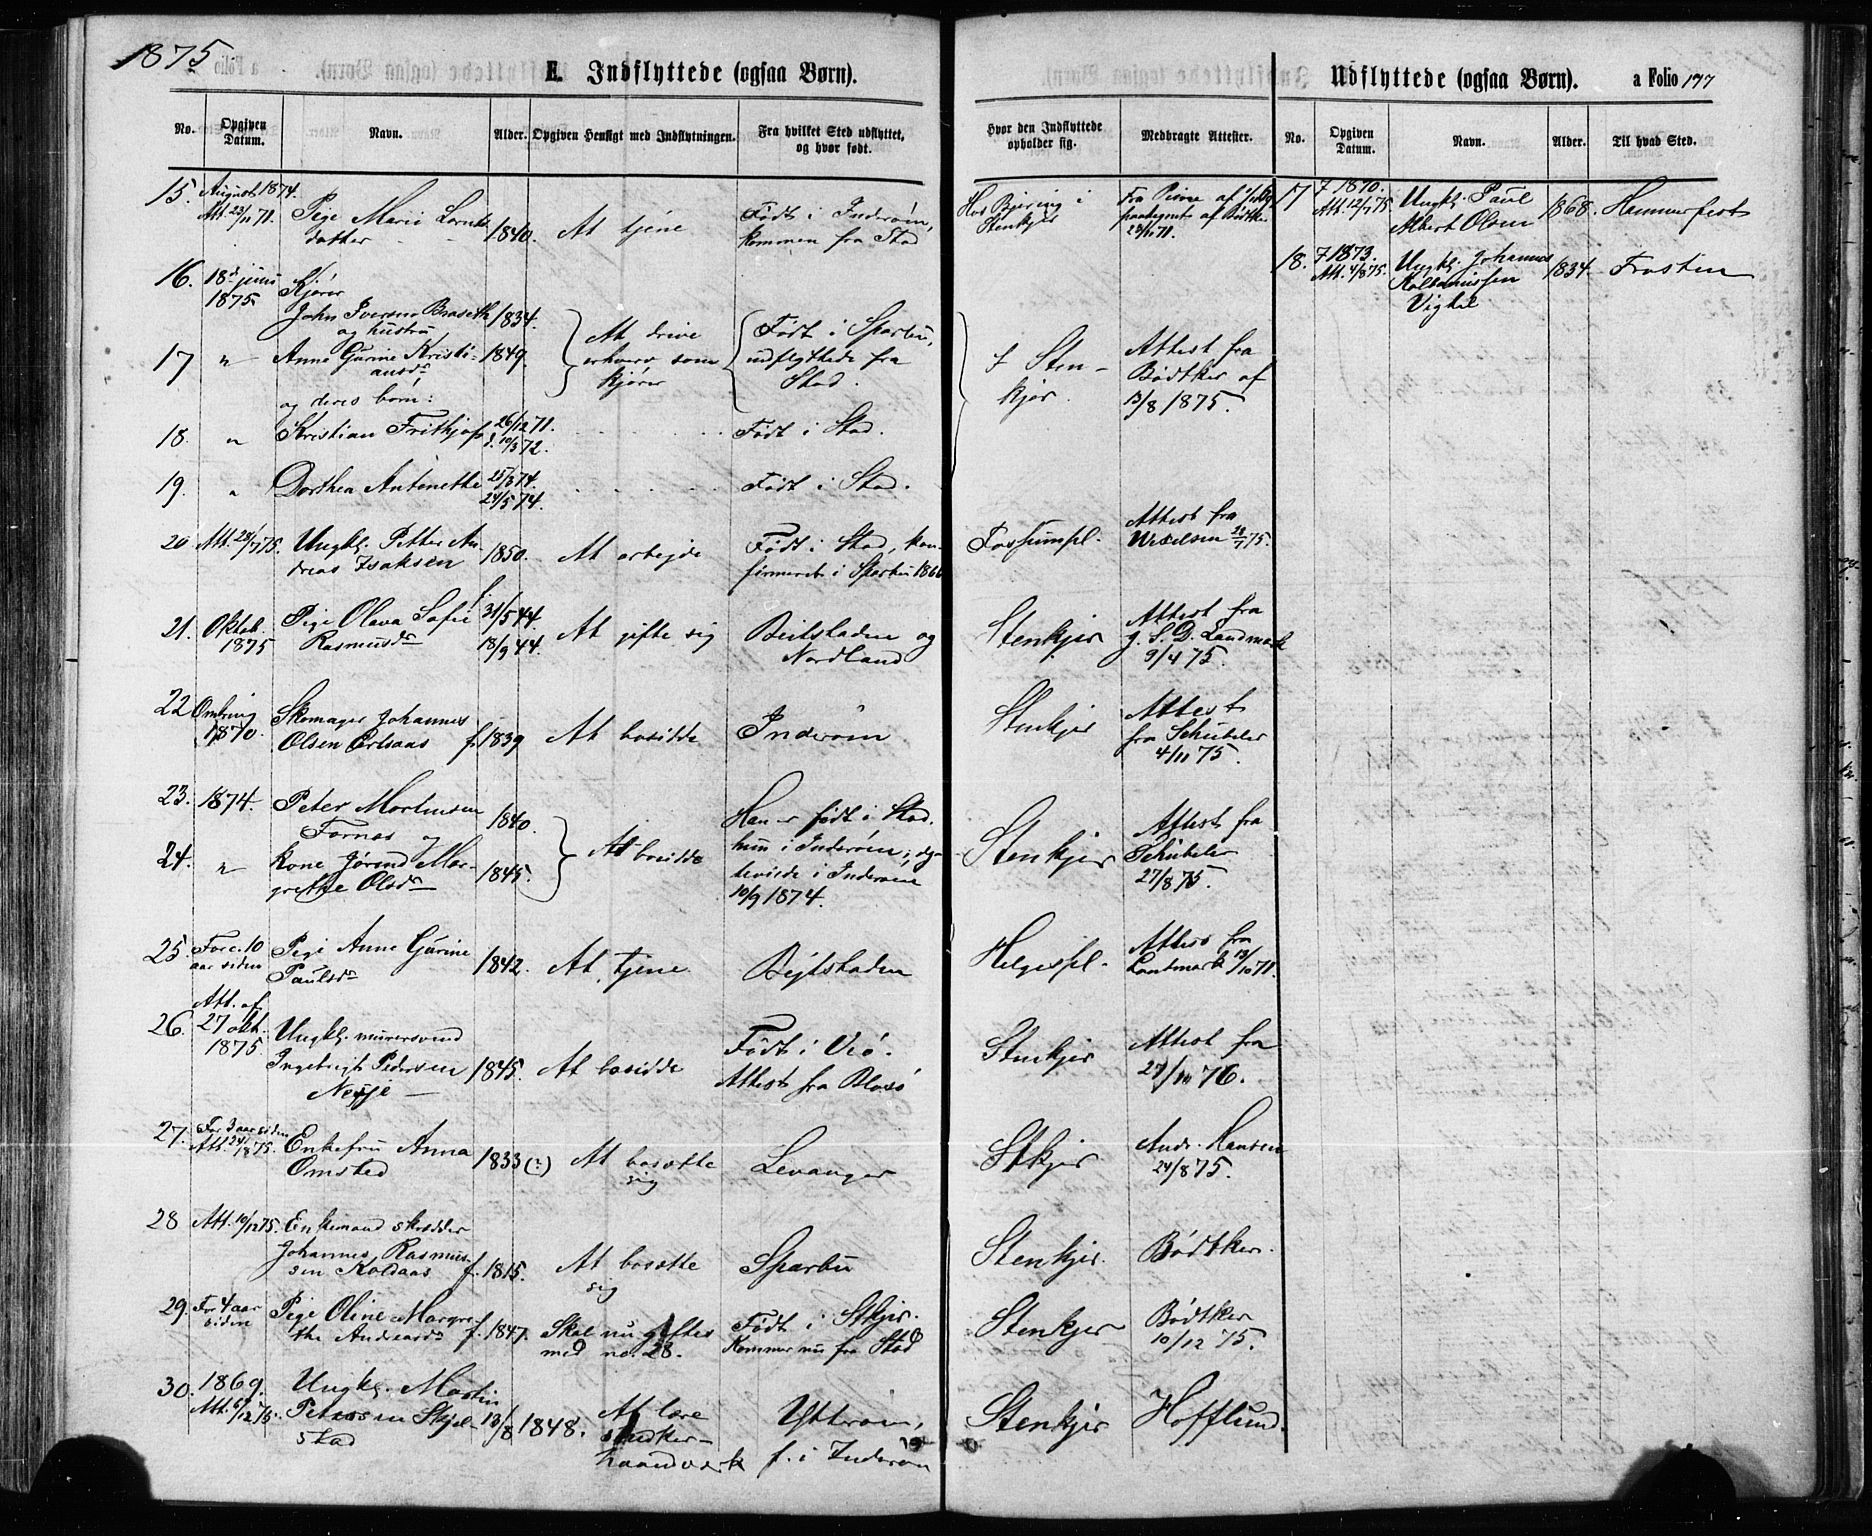 1875
E. Indflyttede (ogsaa Børn).
No. Opgiven Datum. Navn. Alder. Opgiven Hensigt med Indflytningen. Fra hvilket Sted udflyttet, og hvor født.
Hvor den Indflyttede opholder sig. Medbragte Attester.
15. August 1874. Att. 23/11 71. Pige Marie datter 1840. At tjene Født i Inderøen, kommen fra Stod
Hos Bjering i Stenkjer Fra paategnet af Bødtker
16. 18de juni 1875 Kjører John Iversen Braseth og hustru 1834. At drive erhverv som kjører Født i Sparbu, udflyttede fra Stod.
I Stenkjer. Attest fra Bødtker af 13/8 1875.
17 " Anne Gurine Kristiansdr 1849.
og deres børn:
18. " Kristian Frithjof 26/12 71. d. 10/3 72. Født i Stod.
19. " Dorthea Antonette 25/3 74. 24/5 74. Født i Stod.
20 Att. 28/7 75. Ungkl. Petter Andreas Isaksen 1850. At arbejde Født i Stod, konfirmeret i Sparbu 1866
Fossumpl. Attest fra Wexelsen 28/7 75.
21. Oktob. 1875 Pige Olava Sofie Rasmusdr f. 31/5 44. 18/9 44. At gifte sig Beitstaden og Nordland
Stenkjer Attest fra g. S. D. Landmark 9/4 75.
22 Omkring 1870. Skomager Johannes Olsen f. 1839 At bosidde Inderøen
Stenkjer Attest fra Schübeler 4/11 75.
23. 1874. Peter Martinsen Fornes og 1840. At bosidde Han er født i Stod. hun i Inderøen; ægteviede i Inderøen 10/9 1874.
Stenkjer Attest fra Schübeler 27/8 75.
24. " kone Jørend Margrethe Olsdr 1845.
25. For c. 10 aar siden Pige Anne Gurine Paulsdr 1842. At tjene Bejtstaden
Helgespl. Attest fra Landmark 13/10 71.
26. Att. af 27 okt. 1875. Ungkl. murersvend Ingebrigt Pedersen Nesje 1845. At bosidde Født i Veø. Attest fra
Stenkjer Attest fra 27/10 76.
27. For 3 aar siden Att. 24/8 75. Enkefru Anna Omsted 1833 (?) At bosætte sig Levanger
Stkjer Andr. Hansen 24/8 75.
28 Att. 10/12 75. Enkemand skrædder Johannes Rasmussen Koldaas f. 1815. At bosætte sig Sparbu
Stenkjer. Bødtker.
29. For 4 aar siden Pige Oline Margrethe Andreasdr f. 1847. Skal nu giftes med no. 28. Født i Stkjer. Kommer nu fra Stod
Stenkjer Bødtker 10/12 75.
30. 1869. Att. 6/12 75. Ungkl. Martin Petersen Skjelstad 13/8 1848. At lære snedkerhaandværk Ytterøen, f. i Inderøen
Stenkjer Hofflund.
Udflyttede (ogsaa Børn). a Folio 177
No. Opgiven Datum. Navn. Alder. Til hvad Sted.
17 f 1870. Att. 12/7 75. Ungkl. Paul Albert Olsen 1868. Hammerfest
18. f 1873. Att. 4/8 75. Ungkl. Johannes Vigtil 1834. Frosten